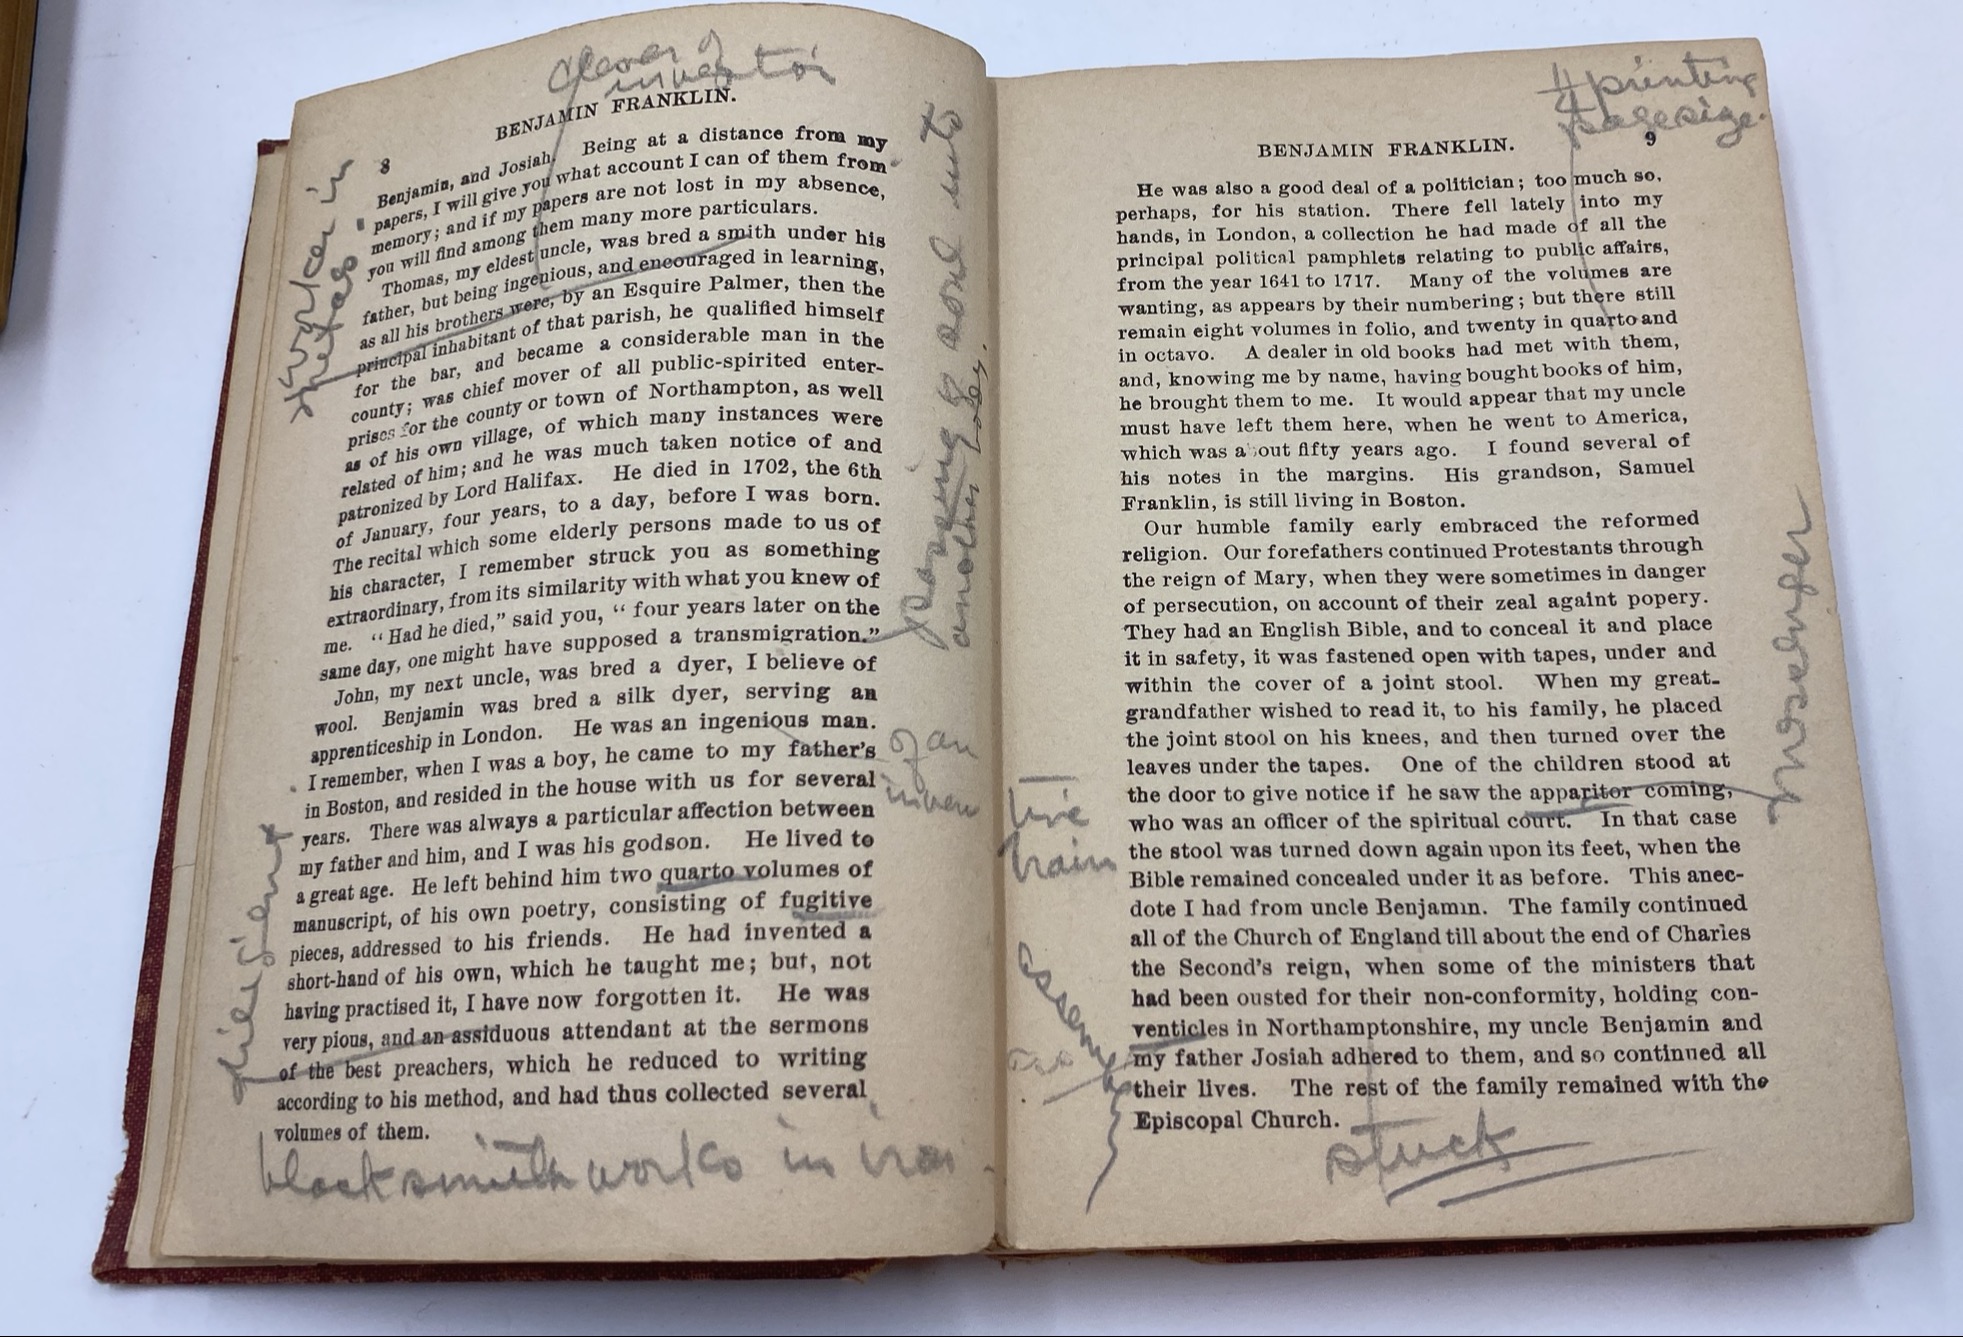 clever of
invention
BENJAMIN FRANKLIN.
8
Benjamin, and Josiah. Being at a distance from my
papers, I will give you what account I can of them from
memory; and if my papers are not lost in my absence,
you will find among them many more particulars.
Thomas, my eldest uncle, was bred a smith under his
father, but being ingenious, and encouraged in learning,
as all his brothers were, by an Esquire Palmer, then the
principal inhabitant of that parish, he qualified himself
for the bar, and became a considerable man in the
county; was chief mover of all public-spirited enter-
prises for the county or town of Northampton, as well
as of his own village, of which many instances were
related of him; and he was much taken notice of and
patronized by Lord Halifax. He died in 1702, the 6th
of January, four years, to a day, before I was born.
The recital which some elderly persons made to us of
his character, I remember struck you as something
extraordinary, from its similarity with what you knew of
me. "Had he died," said you, "four years later on the
same day, one might have supposed a transmigration."
John, my next uncle, was bred a dyer, I believe of
wool. Benjamin was bred a silk dyer, serving an
apprenticeship in London. He was an ingenious man.
I remember, when I was a boy, he came to my father's
in Boston, and resided in the house with us for several
years. There was always a particular affection between
my father and him, and I was his godson. He lived to
a great age. He left behind him two quarto volumes of
manuscript, of his own poetry, consisting of fugitive
pieces, addressed to his friends. He had invented a
short-hand of his own, which he taught me; but, not
having practised it, I have now forgotten it. He was
very pious, and an assiduous attendant at the sermons
of the best preachers, which he reduced to writing
according to his method, and had thus collected several
volumes of them.
worker in
metals
diligent
passing of soul into
another body.
of an
inven
tive
brain
blacksmith works in iron
printing
page size.
BENJAMIN FRANKLIN.
9
He was also a good deal of a politician; too much so,
perhaps, for his station. There fell lately into my
hands, in London, a collection he had made of all the
principal political pamphlets relating to public affairs,
from the year 1641 to 1717. Many of the volumes are
wanting, as appears by their numbering; but there still
remain eight volumes in folio, and twenty in quarto and
in octavo. A dealer in old books had met with them,
and, knowing me by name, having bought books of him,
he brought them to me. It would appear that my uncle
must have left them here, when he went to America,
which was about fifty years ago. I found several of
his notes in the margins. His grandson, Samuel
Franklin, is still living in Boston.
Our humble family early embraced the reformed
religion. Our forefathers continued Protestants through
the reign of Mary, when they were sometimes in danger
of persecution, on account of their zeal againt popery.
They had an English Bible, and to conceal it and place
it in safety, it was fastened open with tapes, under and
within the cover of a joint stool. When my great-
grandfather wished to read it, to his family, he placed
the joint stool on his knees, and then turned over the
leaves under the tapes. One of the children stood at
the door to give notice if he saw the apparitor coming,
who was an officer of the spiritual court. In that case
the stool was turned down again upon its feet, when the
Bible remained concealed under it as before. This anec-
dote I had from uncle Benjamin. The family continued
all of the Church of England till about the end of Charles
the Second's reign, when some of the ministers that
had been ousted for their non-conformity, holding con-
venticles in Northamptonshire, my uncle Benjamin and
my father Josiah adhered to them, and so continued all
their lives. The rest of the family remained with the
Episcopal Church.
messenger
stuck